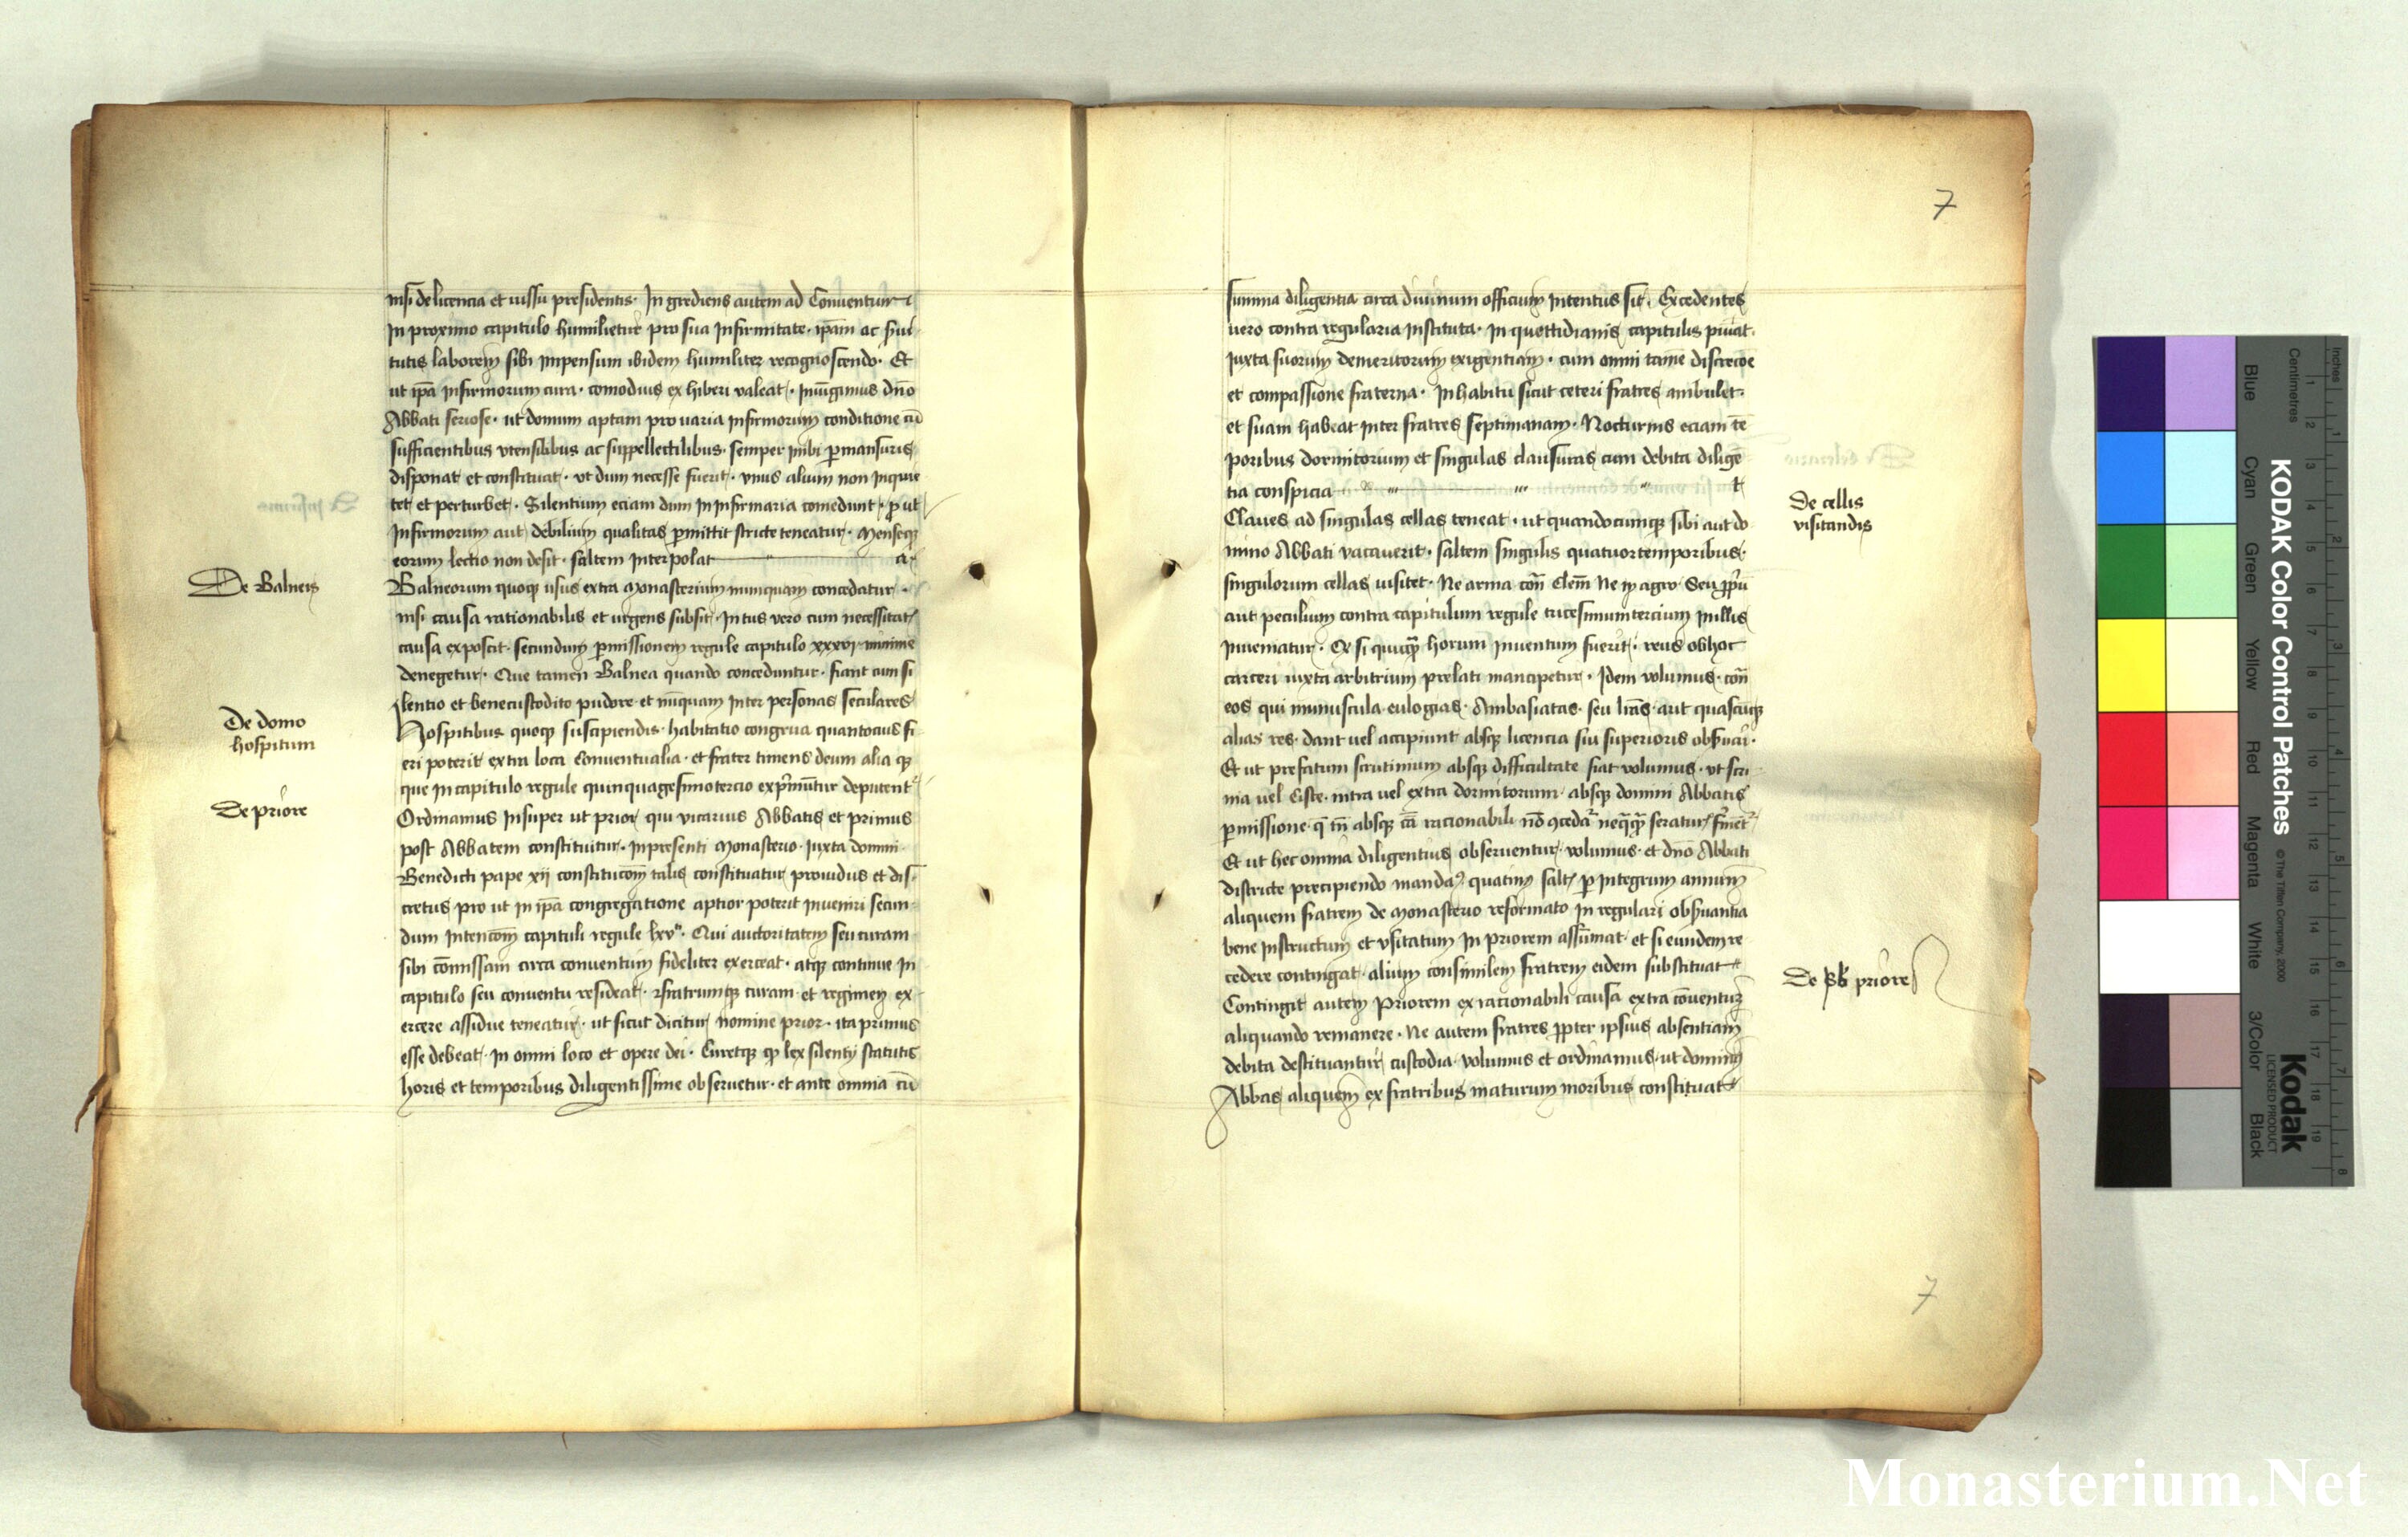 nisi de licencia et iussu presidentis. Ingrediens autem ad Conuentum
In proximo capitulo humilietur pro sua Infirmitate. ipam ac frui
tutis laborem sibi impensum ibidem humiliter recognoscendo. Et
ut ipa Infirmorum cura. comodius exhiberi valeat. Iniungimus dno
Abbati seriose. ut domum aptam pro varia Infirmorum conditione cu
sufficientibus vtensilibus ac suppellectilibus. semper inibi pmansuris
disponat et constituat. ut dum necesse fuerit. vnus alium non Inquie
tet et perturbet. Silentium eciam dum In Infirmaria comedunt. put
Infirmorum aut debilium qualitas pmittit stricte teneatur. Menseqz
eorum lectio non desit. saltem Interpolat
De Balneis
Balneorum quoqz usus extra Monasterium nunquam concedatur.
nisi causa rationabilis et urgens subsit. Intus vero cum necessitatis
causa exposcit. secundum pmissionem regule capitulo xxxvj minime
denegetur. Que tamen Balnea quando conceduntur. fiant cum si
lentio et bene custodito pudore et nuquam Inter personas seculares
De domo
hospitum
Hospitibus quoqz suscipiendis. habitatio congrua quantocius fi
eri poterit extra loca Conuentualia. et frater timens deum alia qz
que In capitulo regule quinquagesimotercio exprimutur deputent
De priore
Ordinamus Insuper ut prior qui vicarius Abbatis et primus
post Abbatem constituitur. Inpresenti Monasterio. Iuxta domini
Benedicti pape xij constitucom talis constituatur prouidus et dis
cretus pro ut In ipa congregatione aptior poterit Inueniri secun
dum Intencom capituli regule lxv. Qui auctoritatem seu curam
sibi comissam circa conuentum fideliter exerceat. atqz continue In
capitulo seu conuentu resideat. fratrumqz curam et regimen ex
ercere assidue teneatur. ut sicut dicitur nomine prior. ita primus
esse debeat. In omni loco et opere dei. Curetqz qz lex silentij statutis
horis et temporibus diligentissime obseruetur. et ante omnia cu
7
summa diligentia circa diuinum officium Intentus sit. Excedentes
uero contra regularia Instituta. In quottidianis capitulis puniat.
Iuxta suorum demeritorum exigentiam. cum omni tame discrecoe
et compassione fraterna. In habitu sicut ceteri fratres ambulet.
et suam habeat Inter fratres septimanam. Nocturnis eciam te
poribus dormitorium et singulas clausuras cum debita dilige
tia conspicia t
De cellis
visitandis
Claues ad singulas cellas teneat. ut quandocumqz sibi aut do
mino Abbati vacauerit. saltem singulis quatuortemporibus.
singulorum cellas uisitet. Ne arma con Clem Ne in agro Seu ppriu
aut peculium contra capitulum regule tricesimumtercium Inillis
Inueniatur. Et si quicqz horum Inuentum fuerit. reus ob hoc
carceri iuxta arbitrium prelati mancipetur. Idem volumus. con
eos qui munuscula. eulogias. Ambasiatas. seu lras. aut quascuqz
alias res. dant uel accipiunt absqz licencia sui superioris obseruari.
Et ut prefatum scrutinium absqz difficultate fiat volumus. ut scri
nia uel Ciste. intra uel extra dormitorium. absqz domini Abbatis
pmissione. q tn absqz ca racionabili no cceda neqqz seratur
Et ut hec omnia diligentius obseruentur. volumus. et dno Abbati
districte precipiendo manda quatinus salt p Integrum annum
aliquem fratrem de Monasterio reformato In regulari obseruantia
bene Instructum et vsitatum In priorem assumat. et si eundem re
cedere contingat. alium consimilem fratrem eidem substituat
De sb priore
Contingit autem Priorem ex racionabili causa extra couentum
aliquando remanere. Ne autem fratres ppter ipsius absentiam
debita destituantur custodia. volumus et ordinamus. ut dominus
Abbas aliquem ex fratribus maturum moribus constituat
7
KODAK Color Control Patches
© The Tiffen Company, 2000
Kodak
LICENSED PRODUCT
Blue Cyan Green Yellow Red Magenta White 3/Color Black
Inches
Centimetres
Monasterium.Net